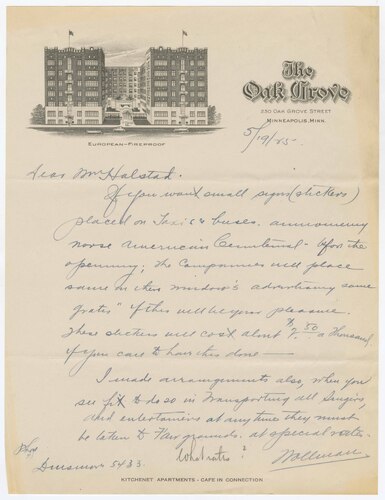 The
Oak Grove
230 OAK GROVE STREET
MINNEAPOLIS, MINN.
EUROPEAN-FIREPROOF
5/19/25-
Dear Mr Halstad.
If you want small signs (stickers)
placed on Taxi & buses. announcing
norse American Centennial - before the
openning; the Companies will place
same in their window's advertising same
"gratis" if this will be your pleasure.
These stickers will cost about $7.50 a thousand,
if you care to have this done —
I made arrangements also, when you
see fit to do so in Transporting all Singers
and entertainers at any time they must
be taken to Fair grounds. at special rates-
What rates?
Wollman
Phy
Dinsmore 5433
KITCHENET APARTMENTS - CAFE IN CONNECTION